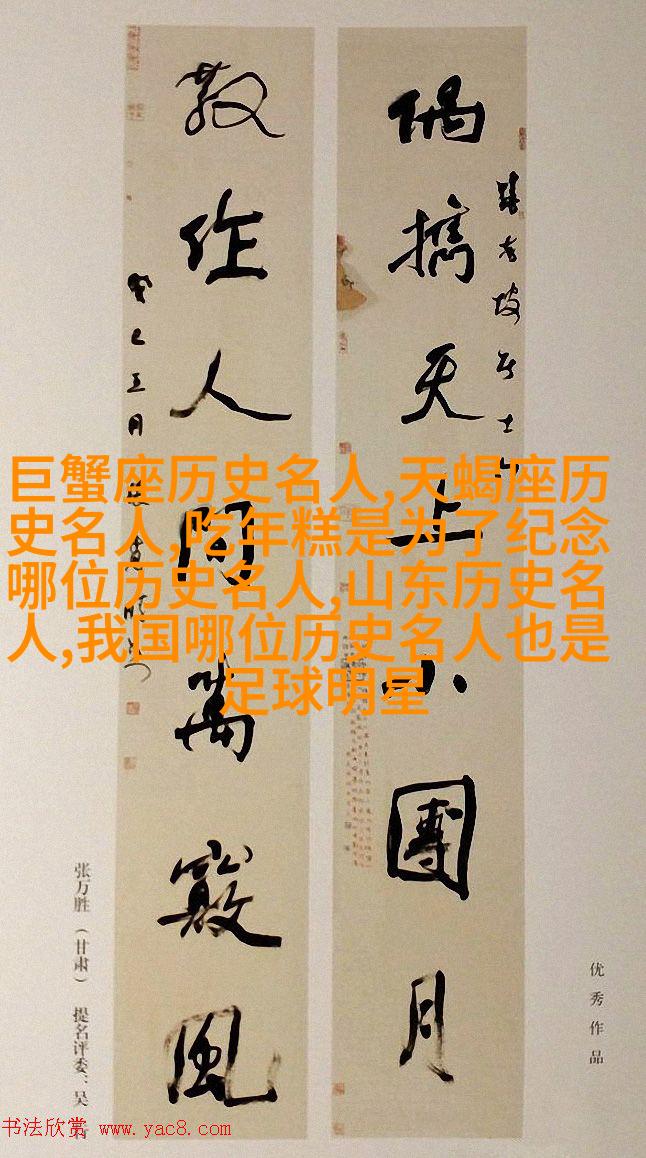 偶攜天上小團月
老坡居士
散作人間萬竅風
癸巳
巨蟹座历史名人,天蝎座历
史名人,吃年糕是为了纪念
哪位历史名人,山东历史名
人,我国哪位历史名人也是
足球明星
优秀作品
张万胜（甘肃） 提名评委：吴
书法欣赏 www.yac8.com